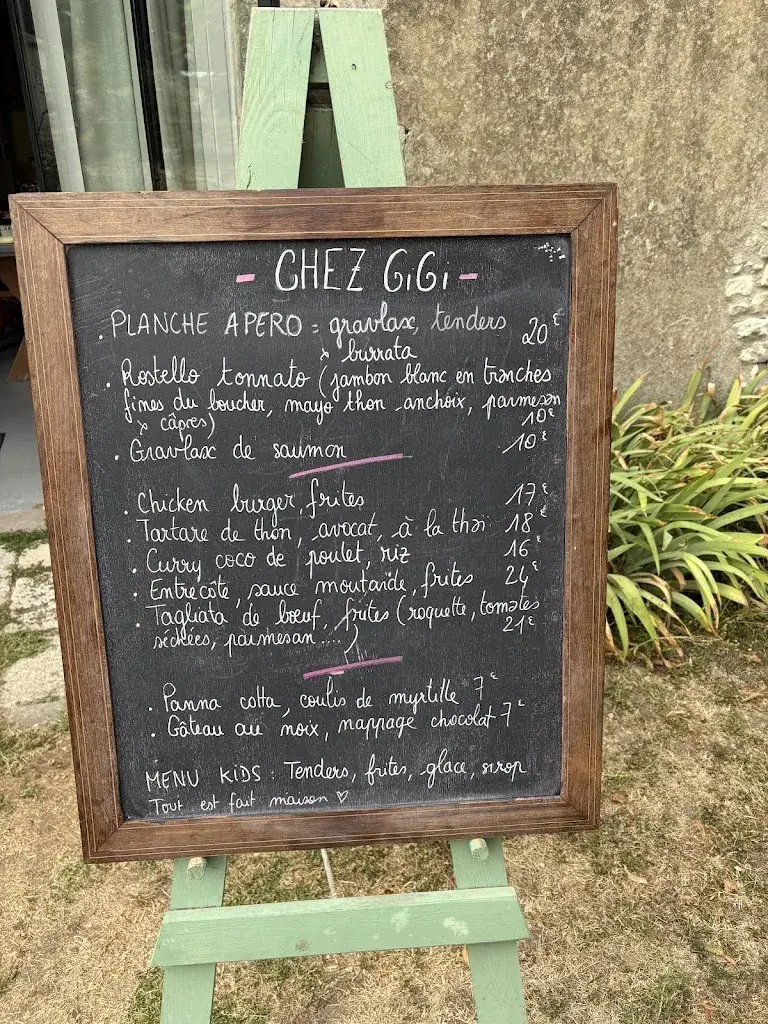 - CHEZ GiGi -
. PLANCHE APERO = gravlax, tenders 20€
x burrata
. Rostello tonnato (jambon blanc en tranches
fines du boucher, mayo thon anchoix, parmesan
x câpres) 10€
. Gravlax de saumon 10€
. Chicken burger, frites 17€
. Tartare de thon, avocat, à la thaï 18€
. Curry coco de poulet, riz 16€
. Entrecôte, sauce moutarde, frites 24€
. Tagliata de bœuf, frites (roquette, tomates
séchées, parmesan....) 21€
. Panna cotta, coulis de myrtille 7€
. Gâteau au noix, nappage chocolat 7€
MENU KIDS : Tenders, frites, glace, sirop
Tout est fait maison ♡